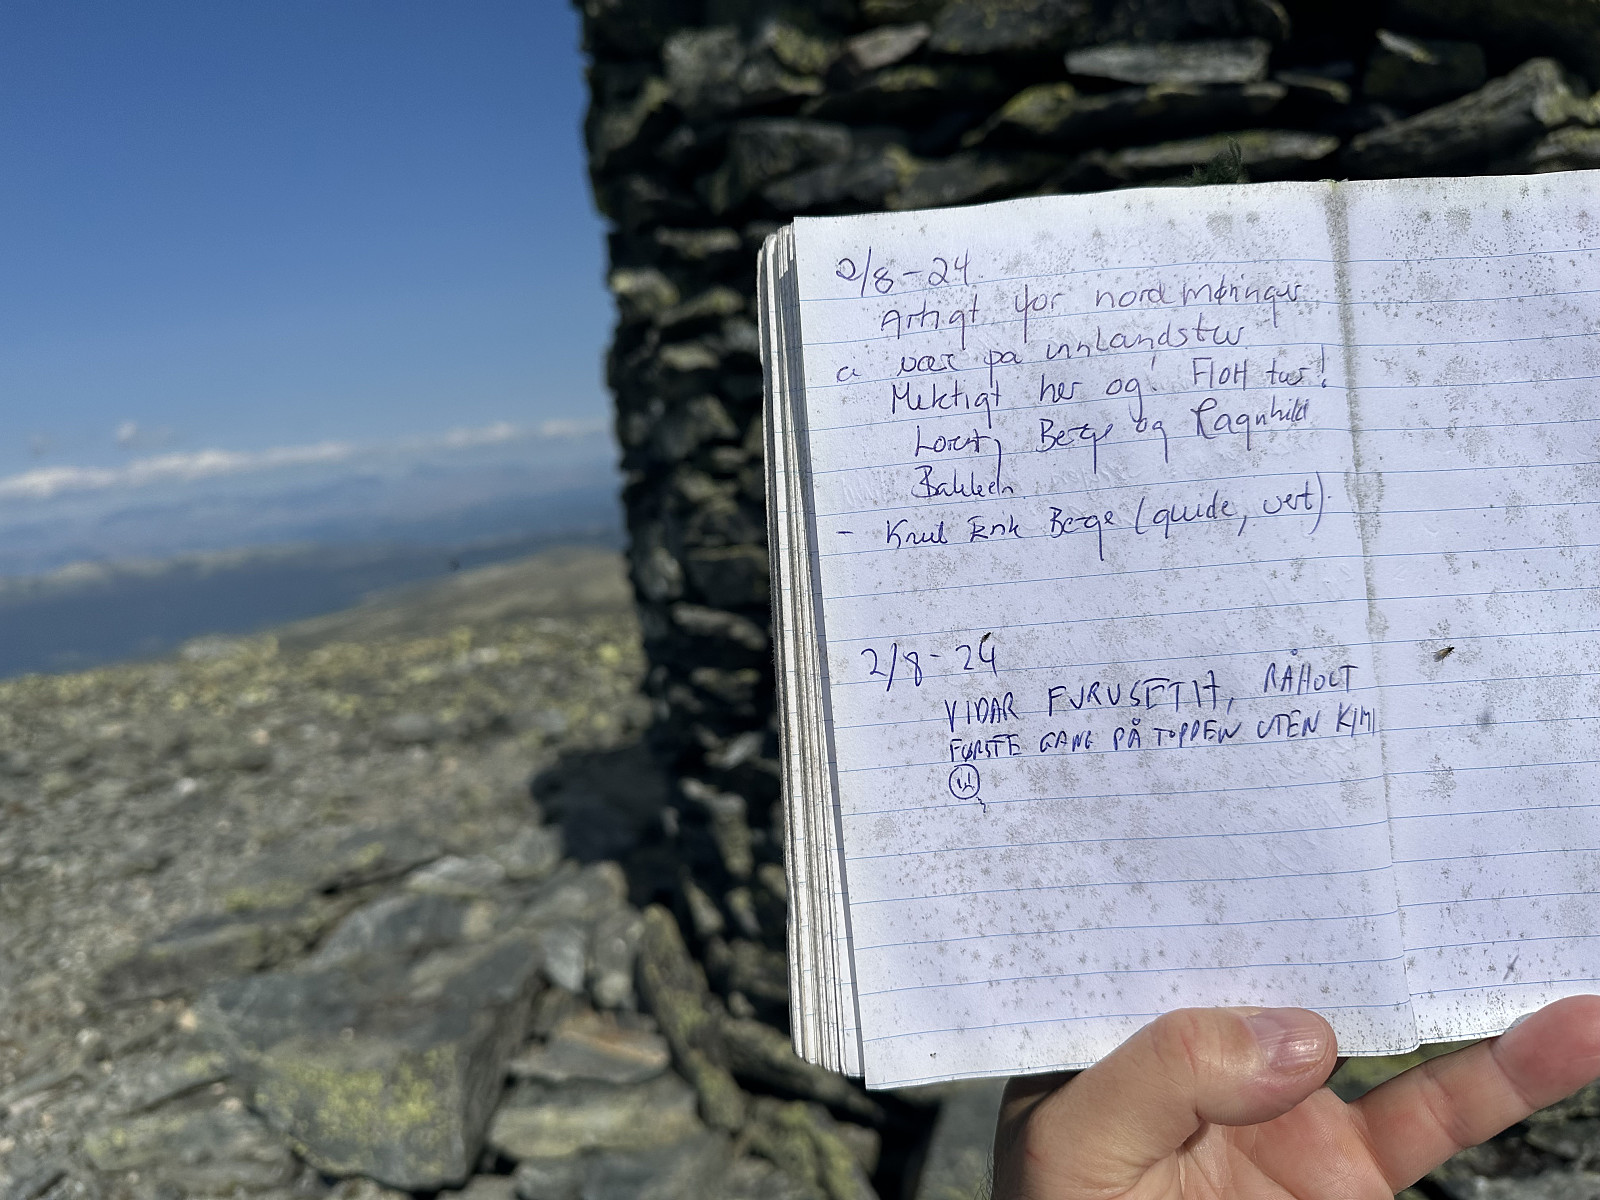 2/8-24.
Artigt for nordmøringer
å være på innlandstur.
Mektigt her og! Flott tur!
Berge og Ragnhild
Bakken.
- Knut Erik Berge (guide, vert).
2/8-24
VIDAR FURUSETH, RÅHOLT
FØRSTE GANG PÅ TOPPEN UTEN KIM